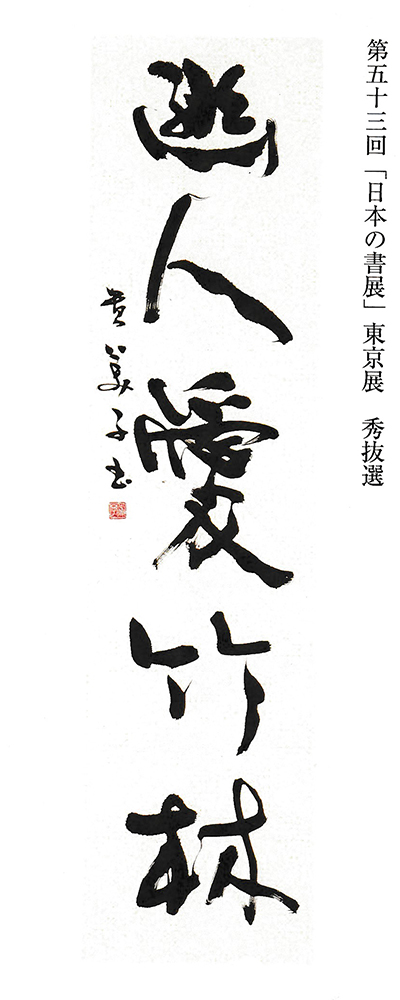 第五十三回「日本の書展」東京展　秀抜選
幽人愛竹林
貴美子書